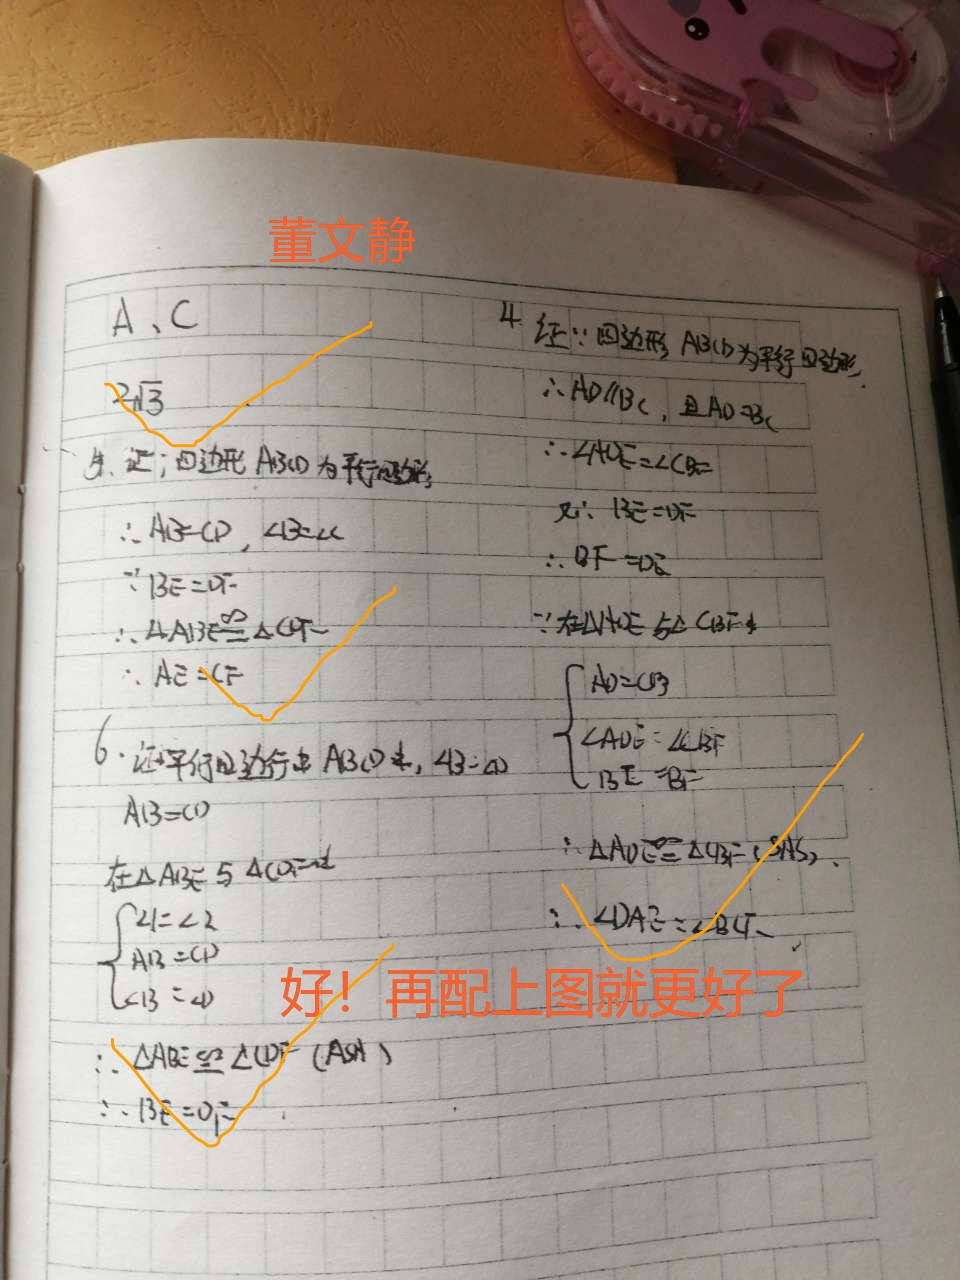 董文静
A、C
2√3
5.证:四边形ABCD为平行四边形
∴AB=CD,∠B=∠C
∵BE=DF
∴△ABE≌△CDF
∴AE=CF
6.证:平行四边行中ABCD中,∠B=∠D
AB=CD
在△ABE与△CDF中
∠1=∠2
AB=CD
∠B=∠D
∴△ABE≌△CDF(ASA)
∴BE=DF
4 证∵四边形ABCD为平行四边形
∴AD∥BC,且AD=BC
∴∠ADE=∠CBF
又∵BE=DF
∴BF=DE
∵在△ADE与△CBF中
AD=CB
∠ADE=∠CBF
BE=BF
∴△ADE≌△CBF(SAS).
∴∠DAE=∠BCF
好!再配上图就更好了